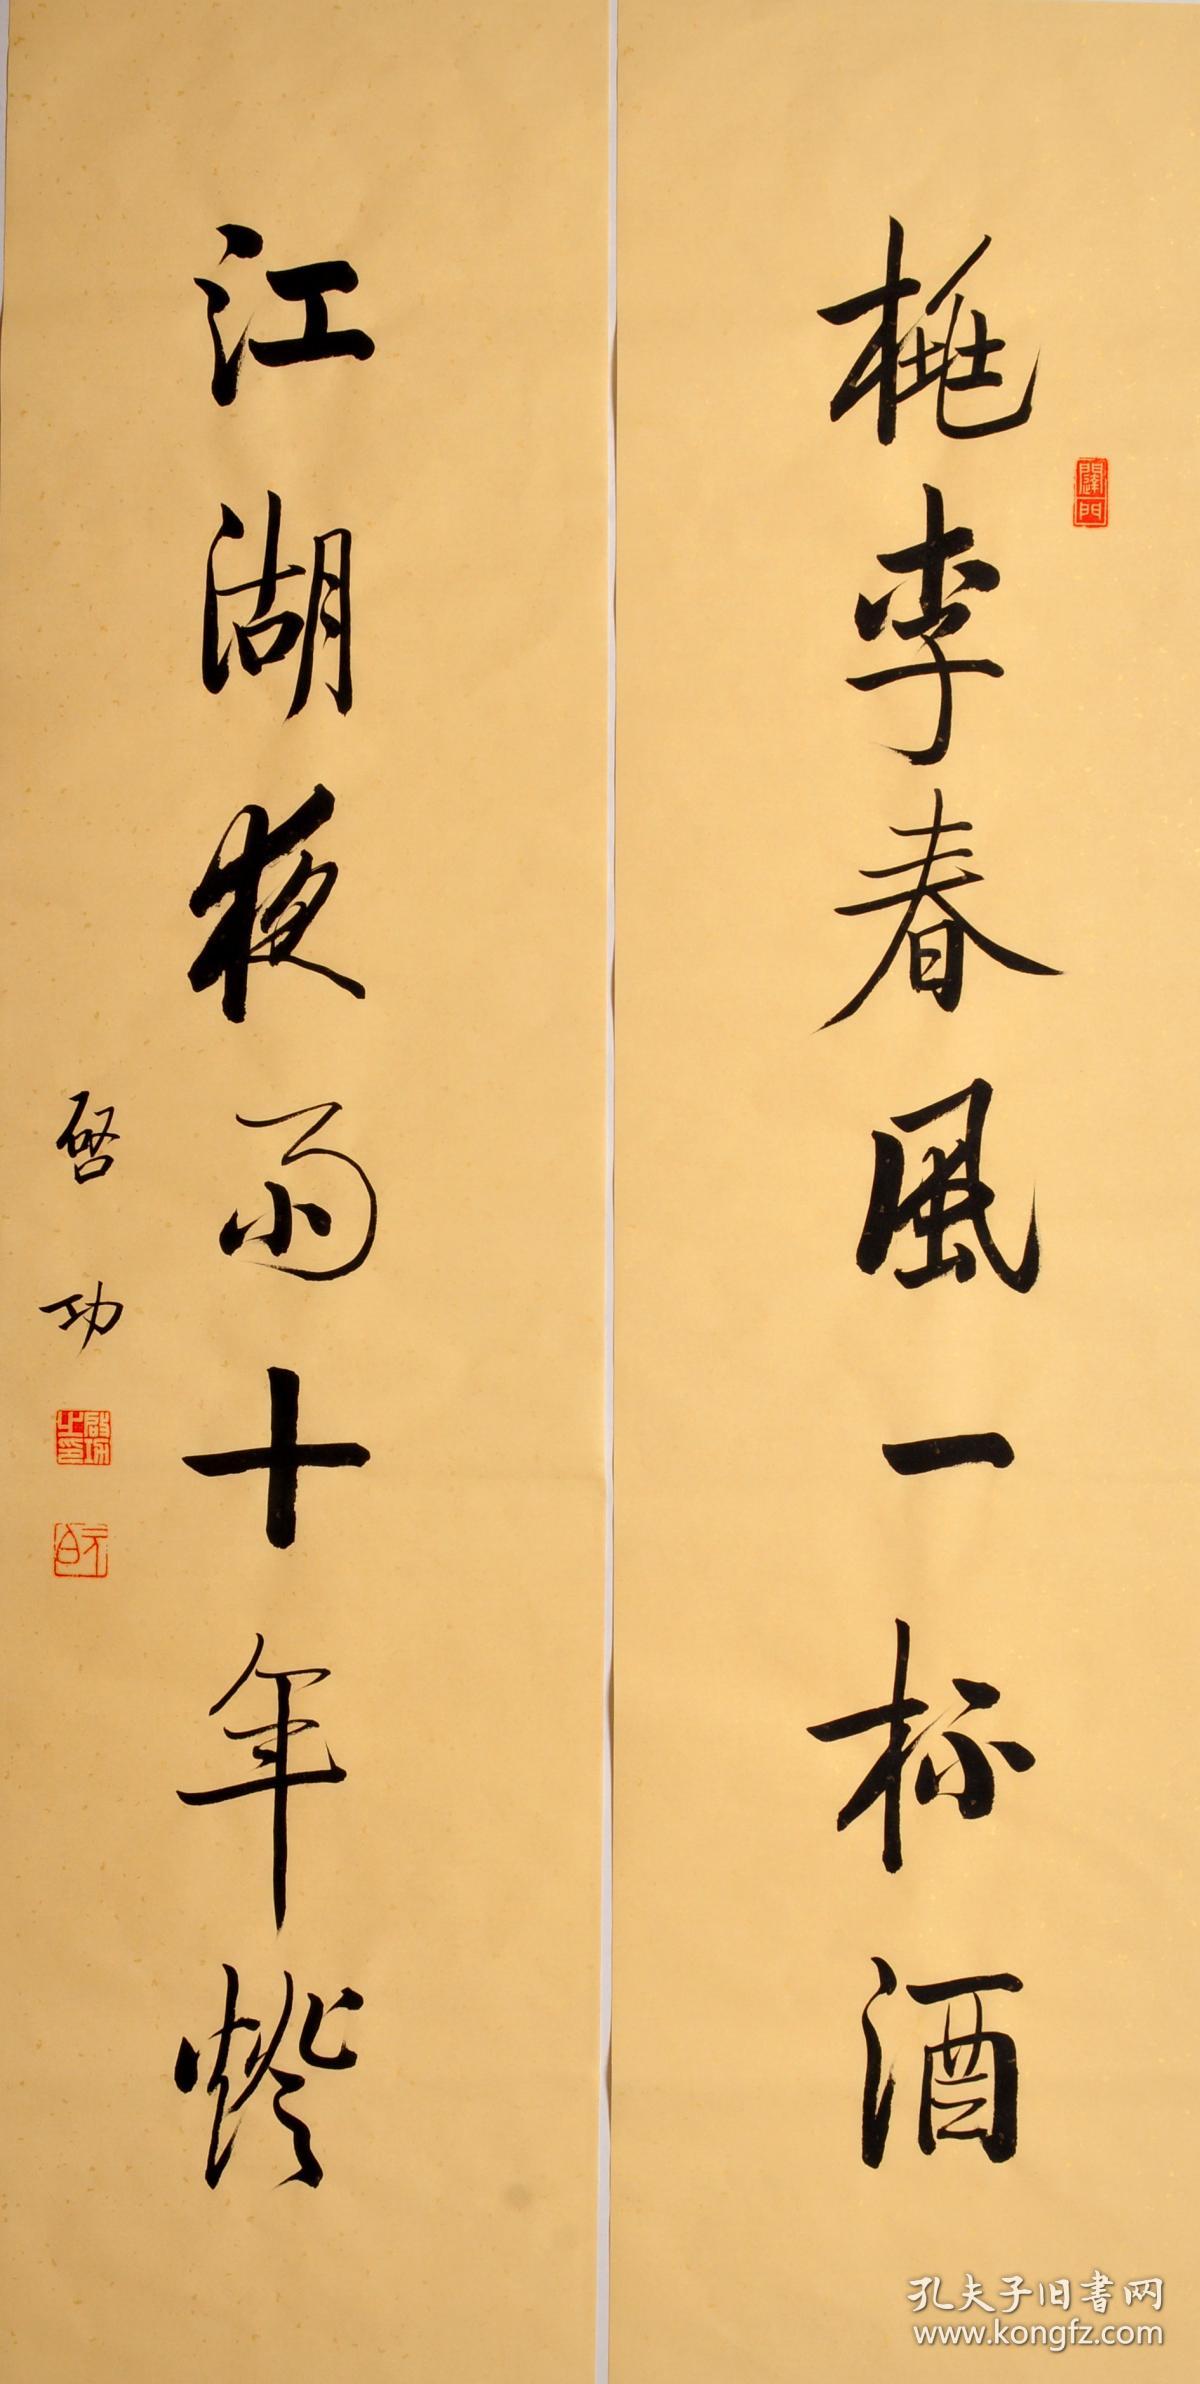 桃李春風一杯酒
江湖夜雨十年燈
啓功
啟功之印
元白
孔夫子旧書网
www.kongfz.com